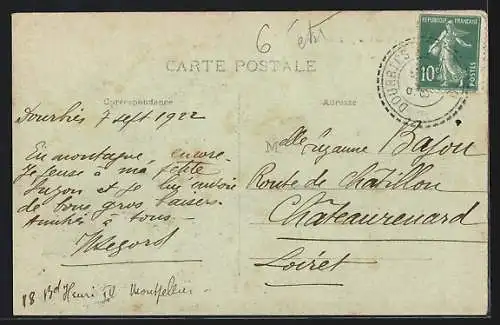 6
CARTE POSTALE
REPUBLIQUE FRANÇAISE
10c
POSTES
DOURBIES
Correspondance
Adresse
Dourbies 7 sept 1922
En montagne, encore.
Je pense à ma petite
Suzon et je lui envoie
de bons gros baisers.
Amitiés à tous
Mlle Suzanne Bajou
Route de Châtillon
Châteaurenard
Loiret
18 Bd Henri IV Montpellier